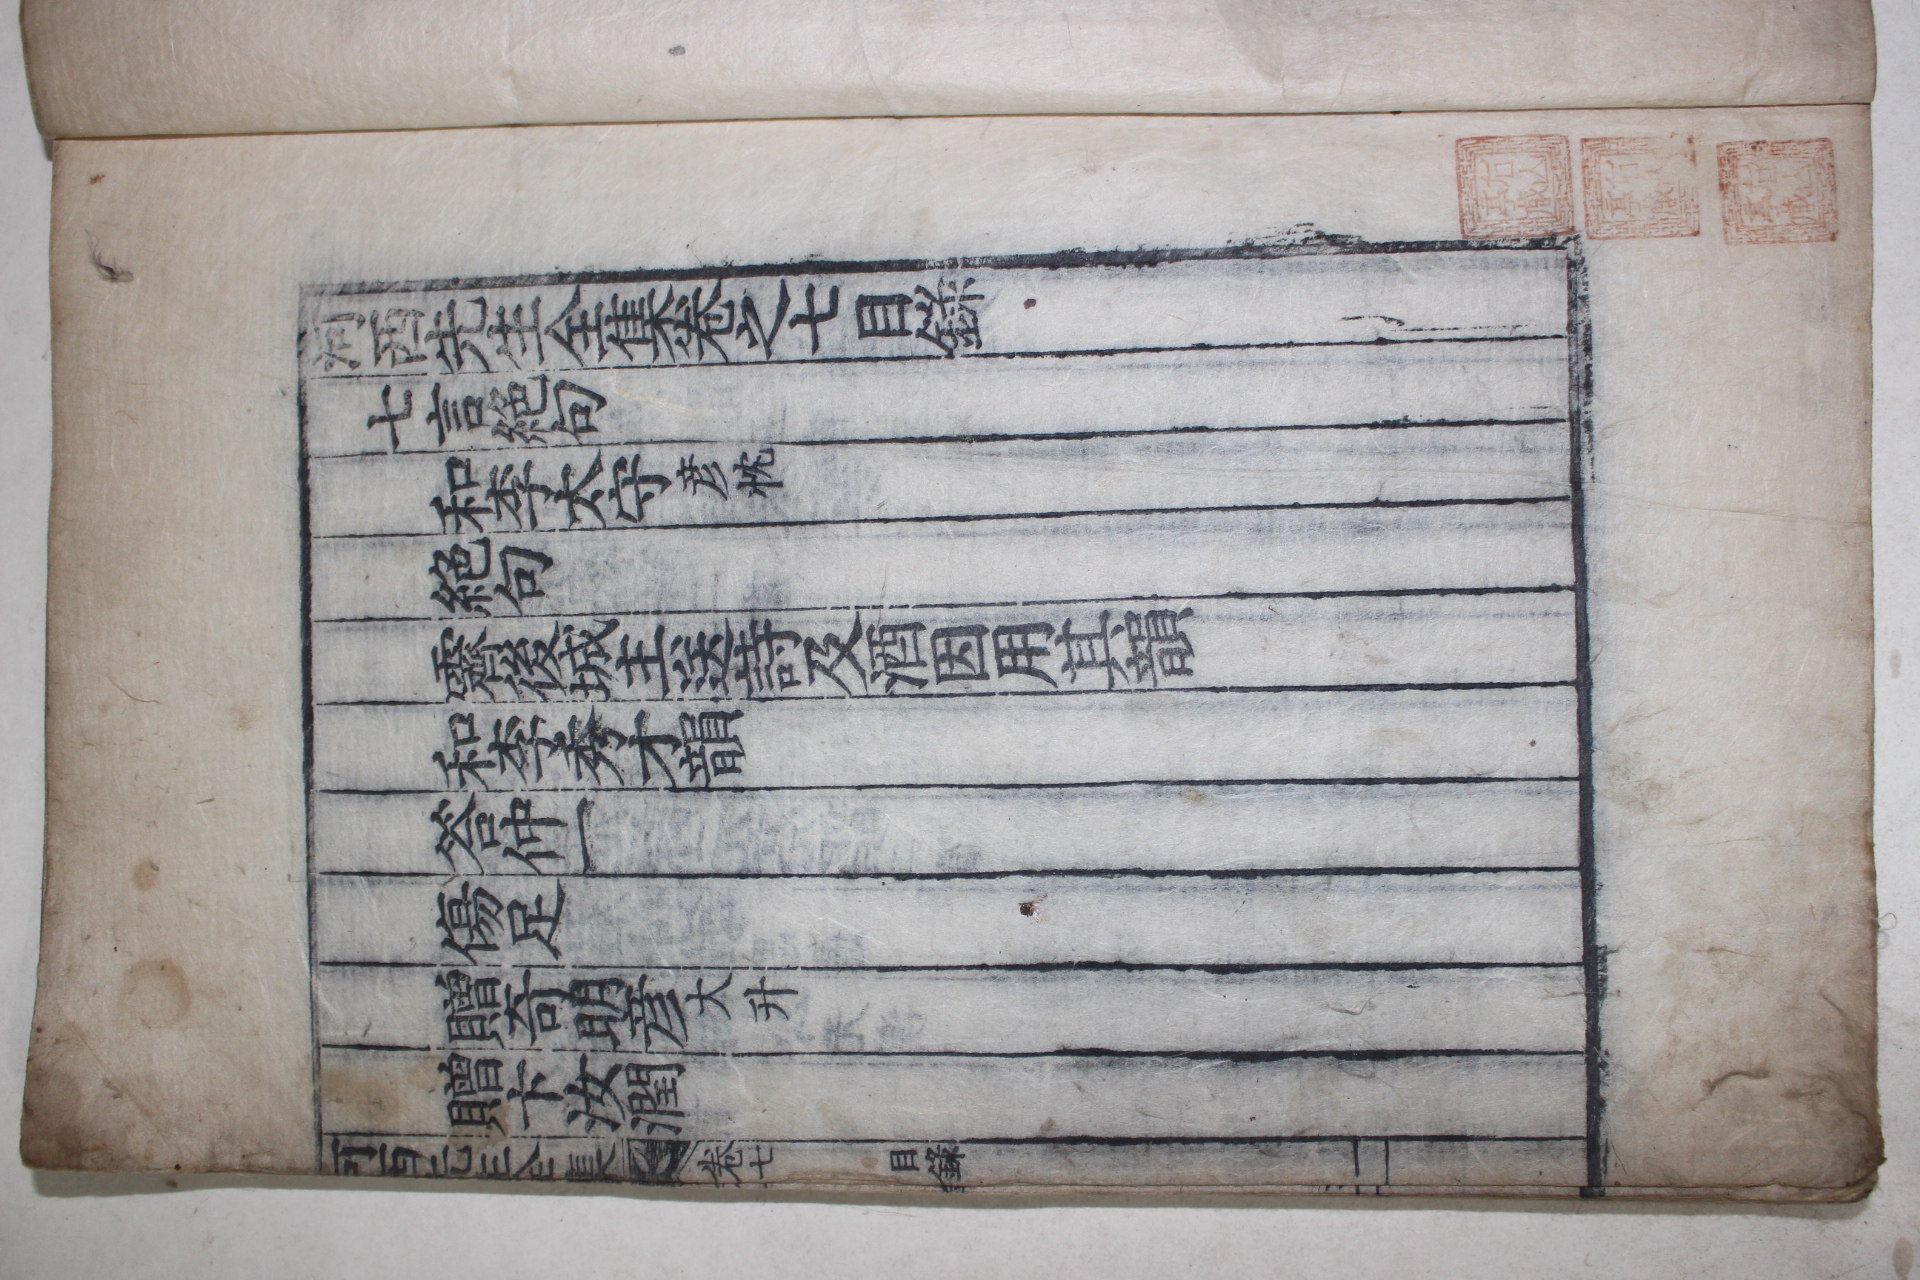 河西先生全集卷之七 目錄
七言絕句
和李太守彦忱
絕句
霽後城主送詩及酒因用其韻
和李秀才韻
答仲一
傷足
贈奇明彦大升
贈卞汝潤
河西先生全集 卷七 目錄 一